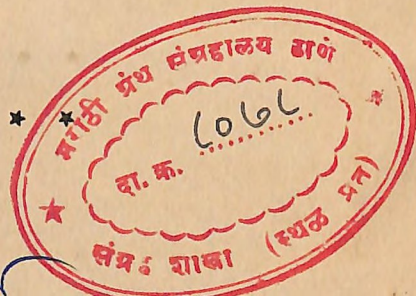 मराठी ग्रंथ संग्रहालय ठाणे
दा. क्र. ८०७८
संग्रह शाखा (स्थळ प्रत)